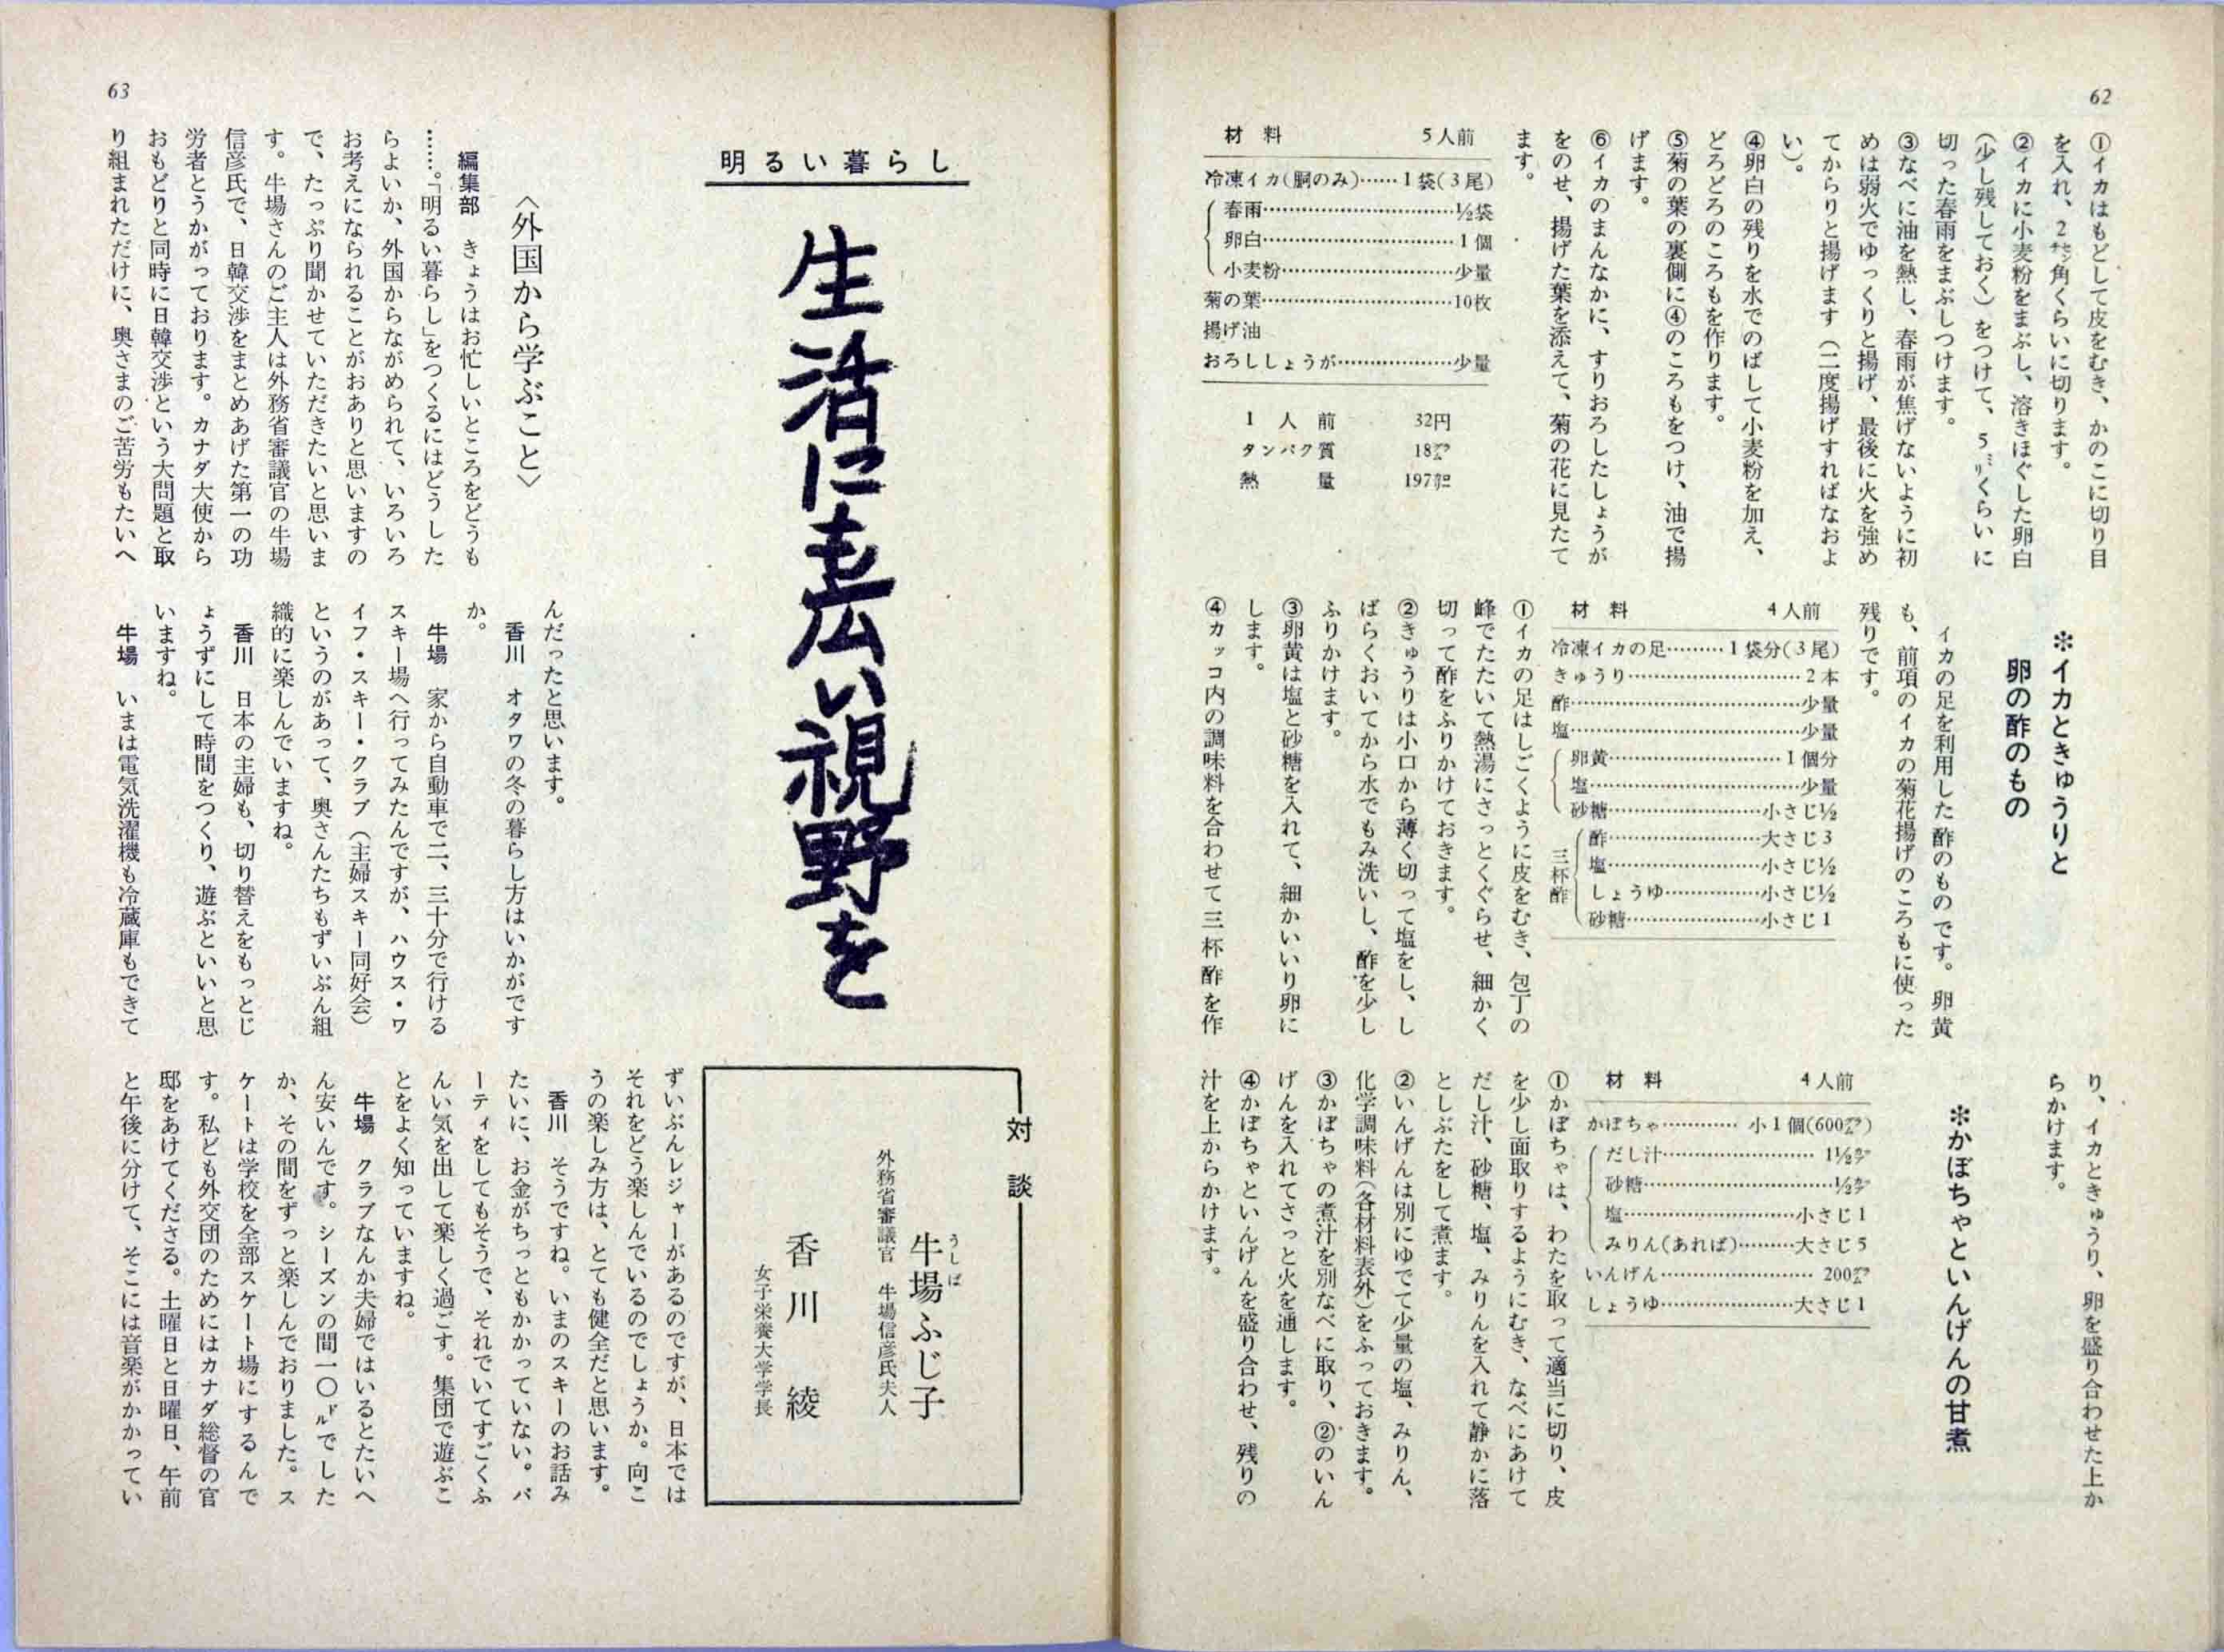 62
①イカはもどして皮をむき、かのこに切り目
を入れ、2㌢角くらいに切ります。
②イカに小麦粉をまぶし、溶きほぐした卵白
(少し残しておく)をつけて、5㍉くらいに
切った春雨をまぶしつけます。
③なべに油を熱し、春雨が焦げないように初
めは弱火でゆっくりと揚げ、最後に火を強め
てからりと揚げます(二度揚げすればなおよ
い)。
④卵白の残りを水でのばして小麦粉を加え、
どろどろのころもを作ります。
⑤菊の葉の裏側に④のころもをつけ、油で揚
げます。
⑥イカのまんなかに、すりおろしたしょうが
をのせ、揚げた葉を添えて、菊の花に見たて
ます。
材料 5人前
冷凍イカ(胴のみ)……1袋(3尾)
春雨……½袋
卵白……1個
小麦粉……少量
菊の葉……10枚
揚げ油
おろししょうが……少量
1人前 32円
タンパク質 18㌘
熱量 197㌍
＊イカときゅうりと
卵の酢のもの
イカの足を利用した酢のものです。卵黄
も、前項のイカの菊花揚げのころもに使った
残りです。
材料 4人前
冷凍イカの足……1袋分(3尾)
きゅうり……2本
酢……少量
塩……少量
卵黄……1個分
塩……少量
砂糖……小さじ½
三杯酢
酢……大さじ3
塩……小さじ½
しょうゆ……小さじ½
砂糖……小さじ1
①イカの足はしごくように皮をむき、包丁の
峰でたたいて熱湯にさっとくぐらせ、細かく
切って酢をふりかけておきます。
②きゅうりは小口から薄く切って塩をし、し
ばらくおいてから水でもみ洗いし、酢を少し
ふりかけます。
③卵黄は塩と砂糖を入れて、細かいいり卵に
します。
④カッコ内の調味料を合わせて三杯酢を作
り、イカときゅうり、卵を盛り合わせた上か
らかけます。
＊かぼちゃといんげんの甘煮
材料 4人前
かぼちゃ……小1個(600㌘)
だし汁……1½㌍
砂糖……½㌍
塩……小さじ1
みりん(あれば)……大さじ5
いんげん……200㌘
しょうゆ……大さじ1
①かぼちゃは、わたを取って適当に切り、皮
を少し面取りするようにむき、なべにあけて
だし汁、砂糖、塩、みりんを入れて静かに落
としぶたをして煮ます。
②いんげんは別にゆでて少量の塩、みりん、
化学調味料(各材料表外)をふっておきます。
③かぼちゃの煮汁を別なべに取り、②のいん
げんを入れてさっと火を通します。
④かぼちゃといんげんを盛り合わせ、残りの
汁を上からかけます。
63
明るい暮らし
生活にも広い視野を
対談
牛場ふじ子
うしば
外務省審議官 牛場信彦氏夫人
香川綾
女子栄養大学学長
〈外国から学ぶこと〉
編集部 きょうはお忙しいところをどうも
……。「明るい暮らし」をつくるにはどうした
らよいか、外国からながめられて、いろいろ
お考えになられることがおありと思いますの
で、たっぷり聞かせていただきたいと思いま
す。牛場さんのご主人は外務省審議官の牛場
信彦氏で、日韓交渉をまとめあげた第一の功
労者とうかがっております。カナダ大使から
おもどりと同時に日韓交渉という大問題と取
り組まれただけに、奥さまのご苦労もたいへ
んだったと思います。
香川 オタワの冬の暮らし方はいかがです
か。
牛場 家から自動車で二、三十分で行ける
スキー場へ行ってみたんですが、ハウス・ワ
イフ・スキー・クラブ(主婦スキー同好会)
というのがあって、奥さんたちもずいぶん組
織的に楽しんでいますね。
香川 日本の主婦も、切り替えをもっとじ
ょうずにして時間をつくり、遊ぶといいと思
いますね。
牛場 いまは電気洗濯機も冷蔵庫もできて
ずいぶんレジャーがあるのですが、日本では
それをどう楽しんでいるのでしょうか。向こ
うの楽しみ方は、とても健全だと思います。
香川 そうですね。いまのスキーのお話み
たいに、お金がちっともかかっていない。パ
ーティをしてもそうで、それでいてすごくふ
んい気を出して楽しく過ごす。集団で遊ぶこ
とをよく知っていますね。
牛場 クラブなんか夫婦ではいるとたいへ
ん安いんです。シーズンの間一〇㌦でした
か、その間をずっと楽しんでおりました。ス
ケートは学校を全部スケート場にするんで
す。私ども外交団のためにはカナダ総督の官
邸をあけてくださる。土曜日と日曜日、午前
と午後に分けて、そこには音楽がかかってい